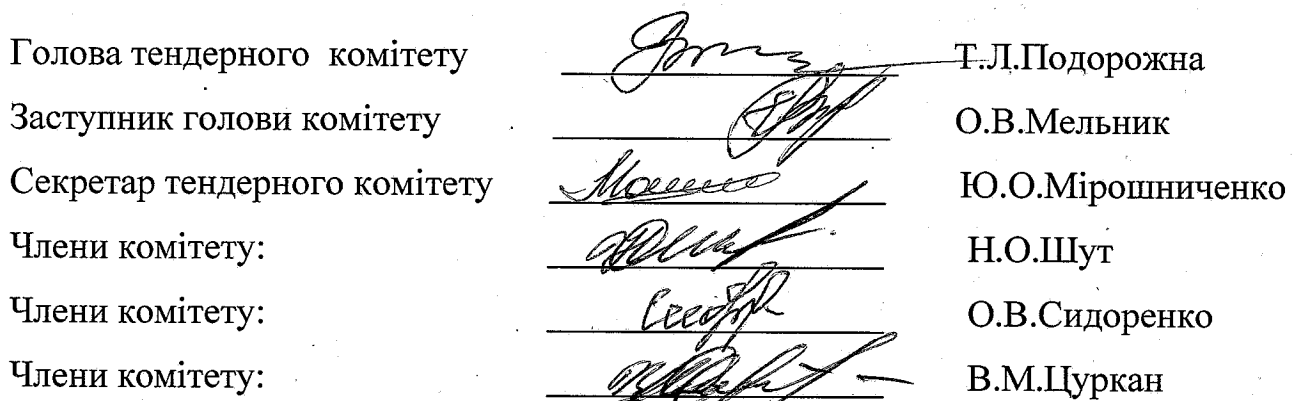 Голова тендерного комітету Т.Л.Подорожна
Заступник голови комітету О.В.Мельник
Секретар тендерного комітету Ю.О.Мірошниченко
Члени комітету: Н.О.Шут
Члени комітету: О.В.Сидоренко
Члени комітету: В.М.Цуркан